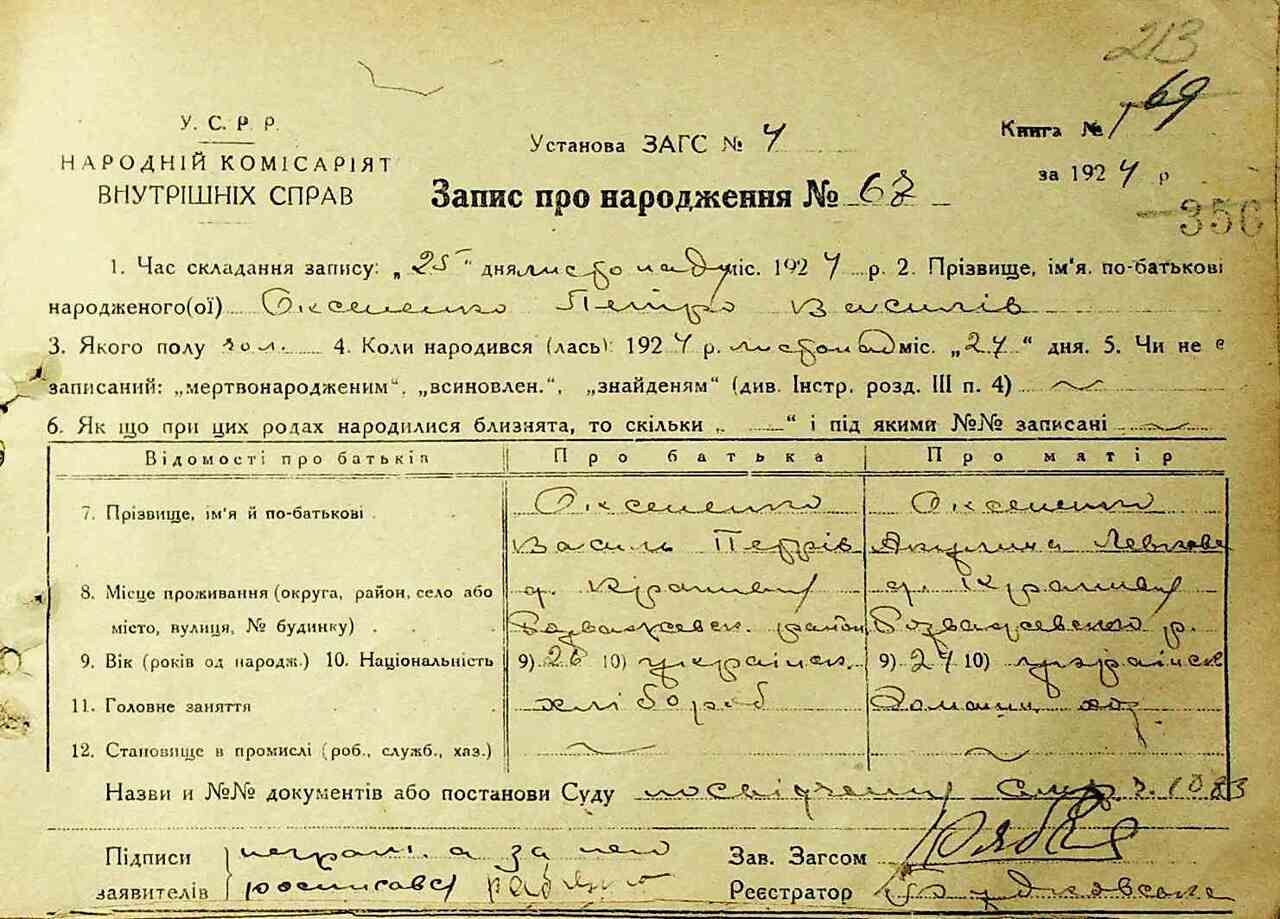 213
У. С. Р. Р.
НАРОДНІЙ КОМІСАРІЯТ
ВНУТРІШНІХ СПРАВ
Установа ЗАГС № 4
Книга № 1 69
за 1924 р
Запис про народження № 67
356
1. Час складання запису: „25" дня листопаду міс. 1924 р. 2. Прізвище, ім'я. по-батькові
народженого(ої) Оксененко Петро Василів
3. Якого полу чол. 4. Коли народився (лась): 1924 р. листопад міс. „24" дня. 5. Чи не є
записаний: „мертвонародженим", „всиновлен.", „знайденям" (див. Інстр. розд. III п. 4)
6. Як що при цих родах народилися близнята, то скільки „ " і під якими №№ записані
Відомості про батьків Про батька Про матір
7. Прізвище, ім'я й по-батькові Оксененко Оксененко
Василь Петрів Акулина Левкова
8. Місце проживання (округа, район, село або
місто, вулиця, № будинку) Розважевск. район Розважевского р.
9. Вік (років од народж.) 10. Національність 9) 26 10) українск. 9) 24 10) українск
11. Головне заняття хлібороб Домашн. хоз.
12. Становище в промислі (роб., служб., хаз.)
Назви и №№ документів або постанови Суду посвідчення
Підписи неграм. а за него
заявителів росписався
Зав. Загсом
Реєстратор